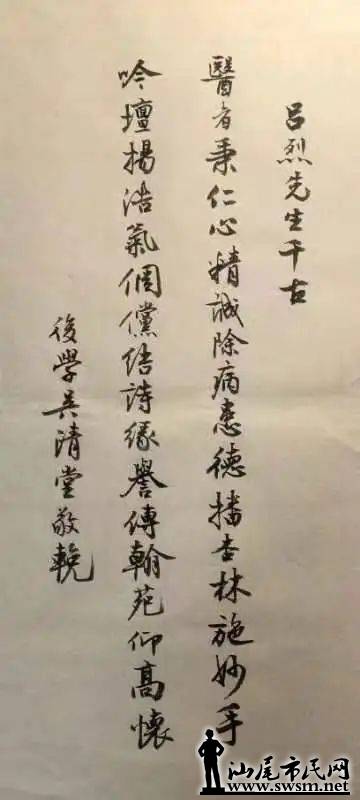 吕烈先生千古
醫者秉仁心精誠除病患德播杏林施妙手
吟壇揚浩氣倜儻結詩緣譽傳翰苑仰高懷
後學吴清堂敬輓
汕尾市民网
www.swsm.net